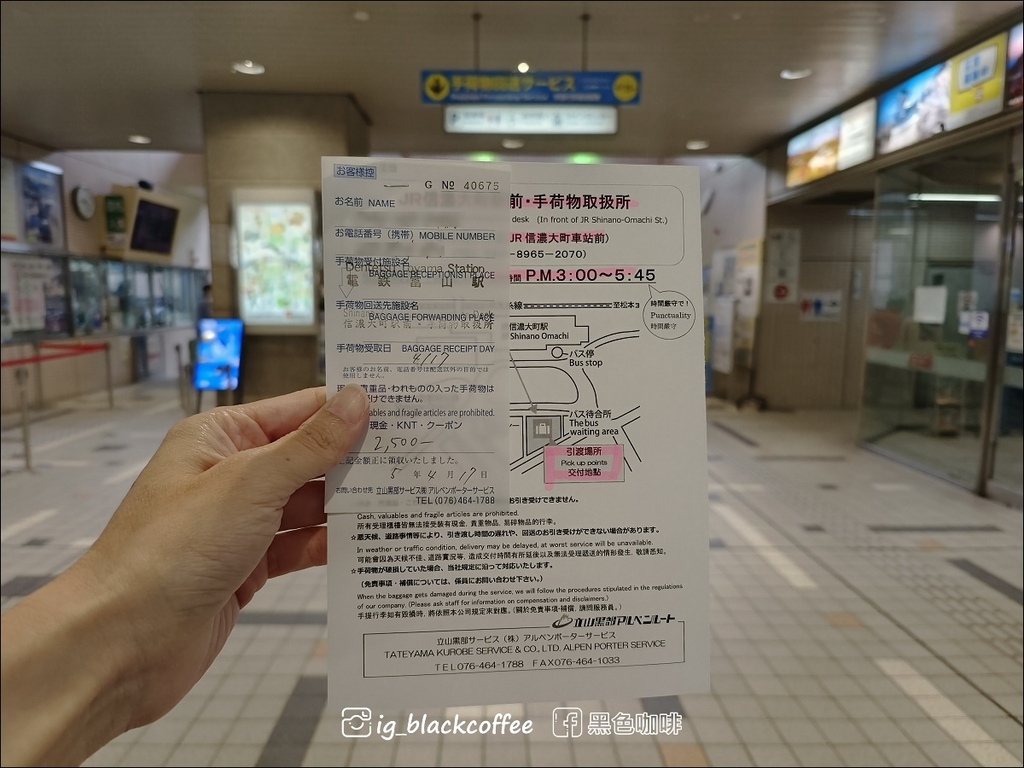 手荷物回送サービス
お客様控
G № 40675
お名前 NAME
お電話番号（携帯）MOBILE NUMBER
手荷物受付施設名
BAGGAGE RECEPTIONIST PLACE
Dentetsu Toyama Station
電鉄富山駅
手荷物回送先施設名
BAGGAGE FORWARDING PLACE
信濃大町駅前・手荷物取扱所
手荷物受取日 BAGGAGE RECEIPT DAY
4/17
お客様のお名前、電話番号は記念以外の目的では
使用しません。
貴重品・われものの入った手荷物は
けできません。
ables and fragile articles are prohibited.
現金・KNT・クーポン
2,500-
記金額正に領収いたしました。
5 年 4 月 17 日
お問い合わせ先 立山黒部サービス㈱ アルペンポーターサービス
TEL (076)464-1788
JR信濃大 前・手荷物取扱所
desk (In front of JR Shinano-Omachi St.)
JR 信濃大町車站前）
-8965-2070）
時間 P.M.3：00～5：45
時間厳守で！
Punctuality
時間嚴守
至松本
信濃大町駅
Shinano Omachi
バス停
Bus stop
バス待合所
The bus
waiting area
引渡場所
Pick up points
交付地點
お引き受けできません。
Cash, valuables and fragile articles are prohibited.
所有受理櫃檯皆無法接受裝有現金, 貴重物品, 易碎物品的行李。
☆悪天候、道路事情等により、引き渡し時間の遅れや、回送のお引き受けができない場合があります。
In weather or traffic condition, delivery may be delayed, at worst service will be unavailable.
可能會因為天候不佳、道路實況等, 造成交付時間有所延後以及無法受理遞送的情形發生, 敬請悉知。
☆手荷物が破損していた場合、当社規定に沿って対応いたします。
（免責事項・補償については、係員にお問い合わせ下さい。）
When the baggage gets damaged during the service, we will follow the procedures stipulated in the regulations
of our company. (Please ask staff for information on compensation and disclaimers.)
手提行李如有毀損時, 將依照本公司規定來對應。（關於免責事項・補償, 請問服務員。）
立山黒部アルペンルート
立山黒部サービス（株）アルペンポーターサービス
TATEYAMA KUROBE SERVICE & CO., LTD. ALPEN PORTER SERVICE
TEL 076-464-1788 FAX 076-464-1033
ig_blackcoffee 黑色咖啡